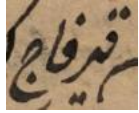 قيرفاج